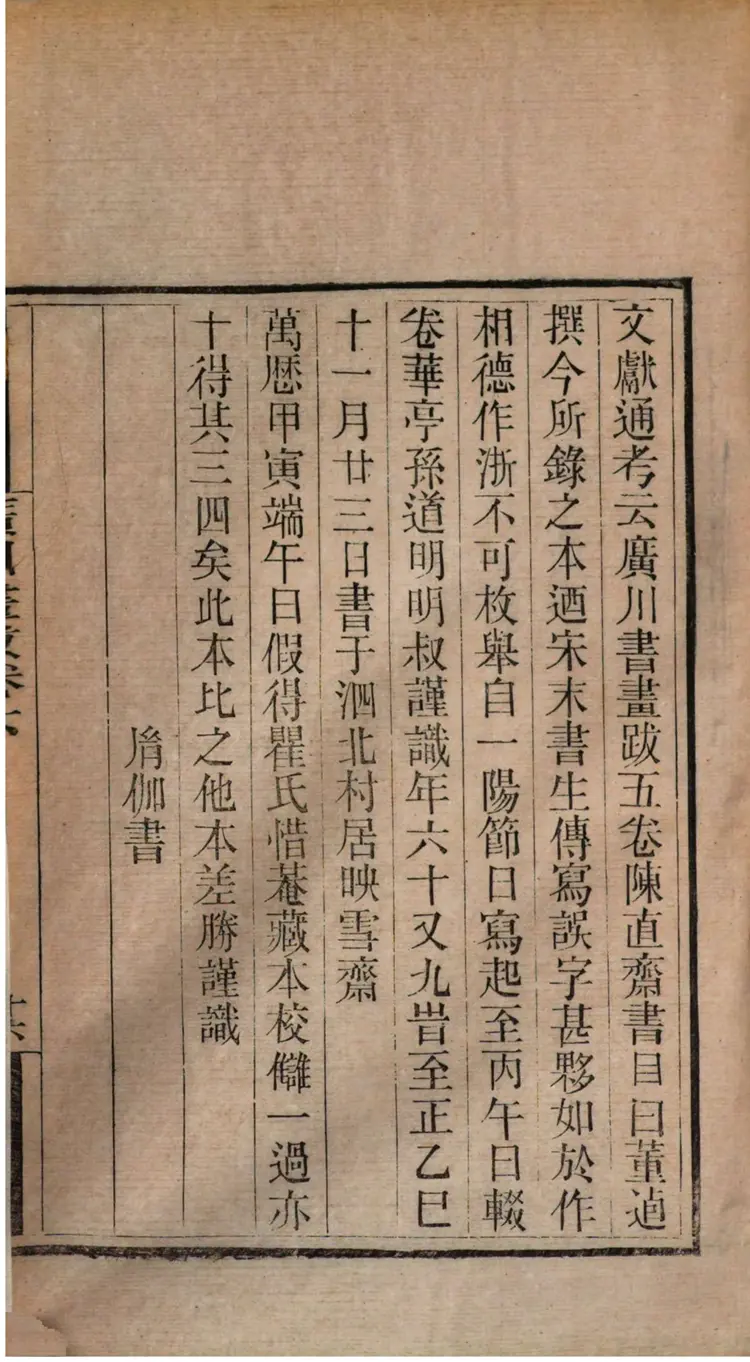 文獻通考云廣川書畫跋五卷陳直齋書目曰董逌
撰今所錄之本迺宋末書生傳寫誤字甚夥如於作
相德作浙不可枚舉自一陽節日寫起至丙午日輟
卷華亭孫道明明叔謹識年六十又九旹至正乙巳
十一月廿三日書于泗北村居映雪齋
萬厯甲寅端午日假得瞿氏惜菴藏本校讎一過亦
十得其三四矣此本比之他本差勝謹識
伽書